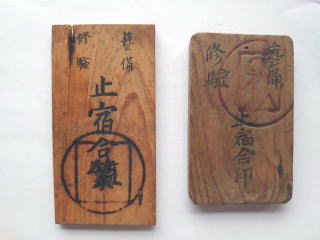 藝備
修驗
止宿合鑑
藝備
修驗
止宿合印